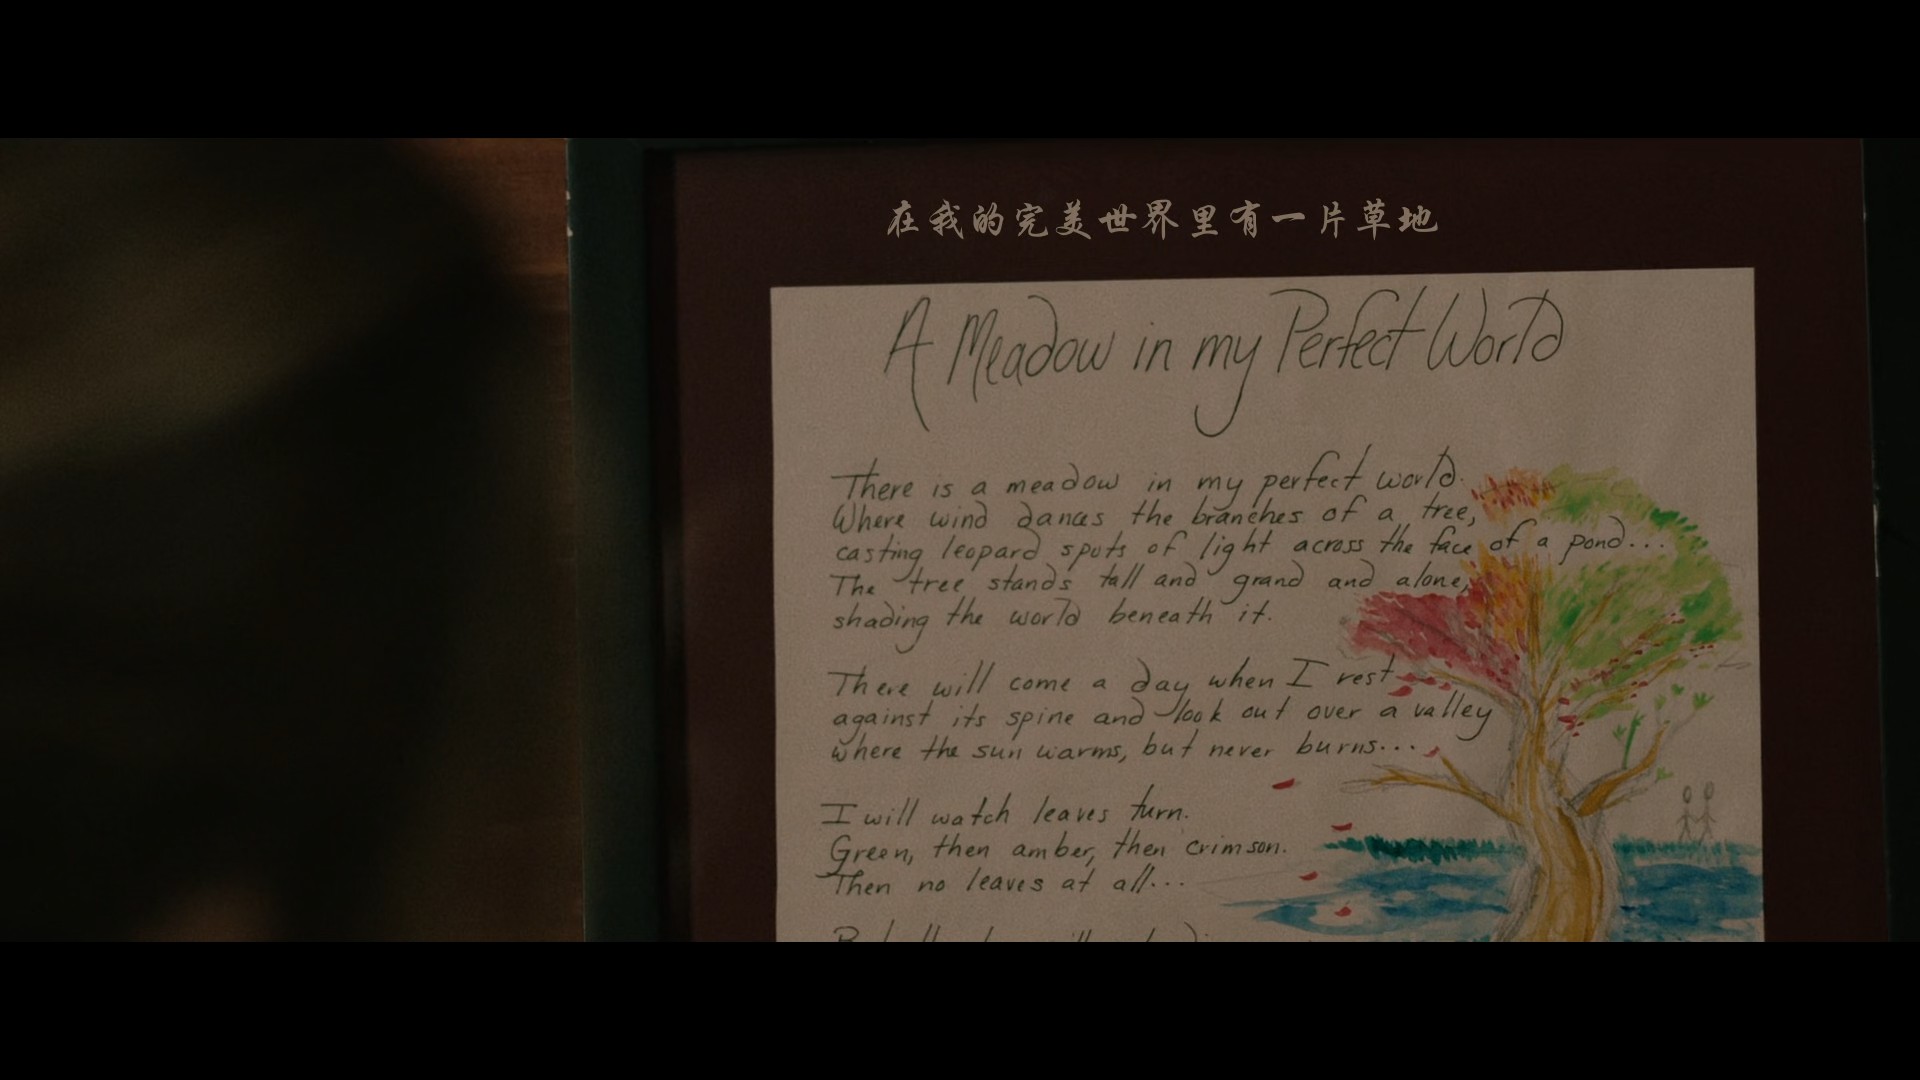 在我的完美世界里有一片草地
A Meadow in my Perfect World
There is a meadow in my perfect world.
Where wind dances the branches of a tree,
casting leopard spots of light across the face of a pond...
The tree stands tall and grand and alone,
shading the world beneath it.
There will come a day when I rest
against its spine and look out over a valley
where the sun warms, but never burns...
I will watch leaves turn.
Green, then amber, then crimson.
Then no leaves at all...